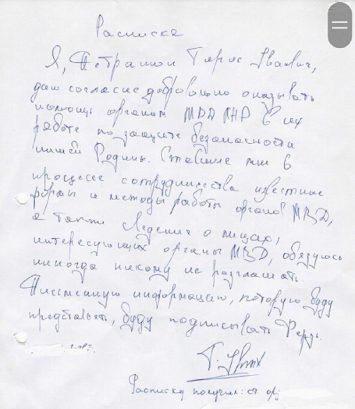 Расписка
Я, Петраш Тарас Иванович,
даю согласие добровольно оказывать
помощь органам МВД ЛНР в их
работе по защите безопасности
нашей Родины. Ставшие мне в
процессе сотрудничества известные
формы и методы работы органов МВД,
а также сведения о лицах,
интересующих органы МВД, обязуюсь
никогда никому не разглашать.
Письменную информацию, которую буду
представлять, буду подписывать
Расписку получил: ст о/у